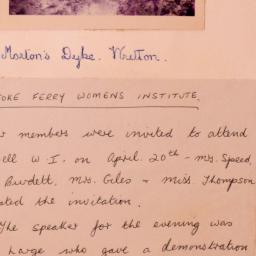 Morton's Dyke. Wretton.
OKE FERRY WOMENS INSTITUTE.
members were invited to attend
ell W.I. on April 20th - Mrs. Speed,
Burdett, Mrs. Giles + Miss. Thompson
ted the invitation.
The speaker for the evening was
Large who gave a demonstration